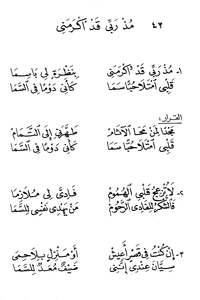 ٤٢ مُذْ رَبِّي قَدْ أَكْرَمَنِي
١- مُذْ رَبِّي قَدْ أَكْرَمَنِي بِنَظْرَةٍ لِي بَاسِمَا
قَلْبِي امْتَلَا حُبًّا سَمَا كَأَنِّي دَوْمًا فِي السَّمَا
القرار:
مَجْدًا لِمَنْ مَحَا الْآثَامْ طَهَّرَنِي إِلَى التَّمَامْ
قَلْبِي امْتَلَا حُبًّا سَمَا كَأَنِّي دَوْمًا فِي السَّمَا
٢- لَا تُزْعِجُ قَلْبِي الْهُمُومْ فَادِيَّ لِي مُلَازِمَا
فَالشُّكْرُ لِلْفَادِي الرَّحُومْ مَنْ يَهْدِي نَفْسِي لِلسَّمَا
٣- إِنْ كُنْتُ فِي قَصْرٍ أَعِيشْ أَوْ مَنْزِلٍ بِلَا حِمَى
سِيَّانِ عِنْدِي إِنَّنِي ضَيْفٌ مُعَدٌّ لِلسَّمَا